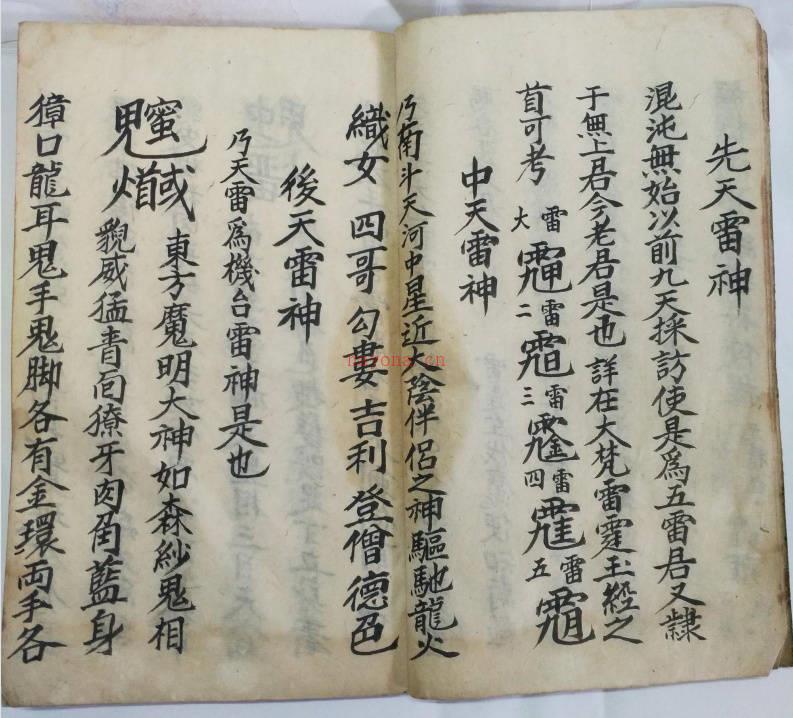 先天雷神
混沌無始以前九天採訪使是爲五雷君又隸
于無上君今老君是也 詳在大梵雷霆玉經之
首可考 大雷 二雷 三雷 四雷 五雷
中天雷神
乃南斗天河中星近太陰伴侶之神驅馳龍火
織女 四哥 勾婁 吉利 登僧 德邑
後天雷神
乃天雷爲機台雷神是也
東方魔明大神如森紗鬼相
貌威猛青面獠牙肉角藍身
獐口龍耳鬼手鬼脚各有金環両手各
nayona.cn